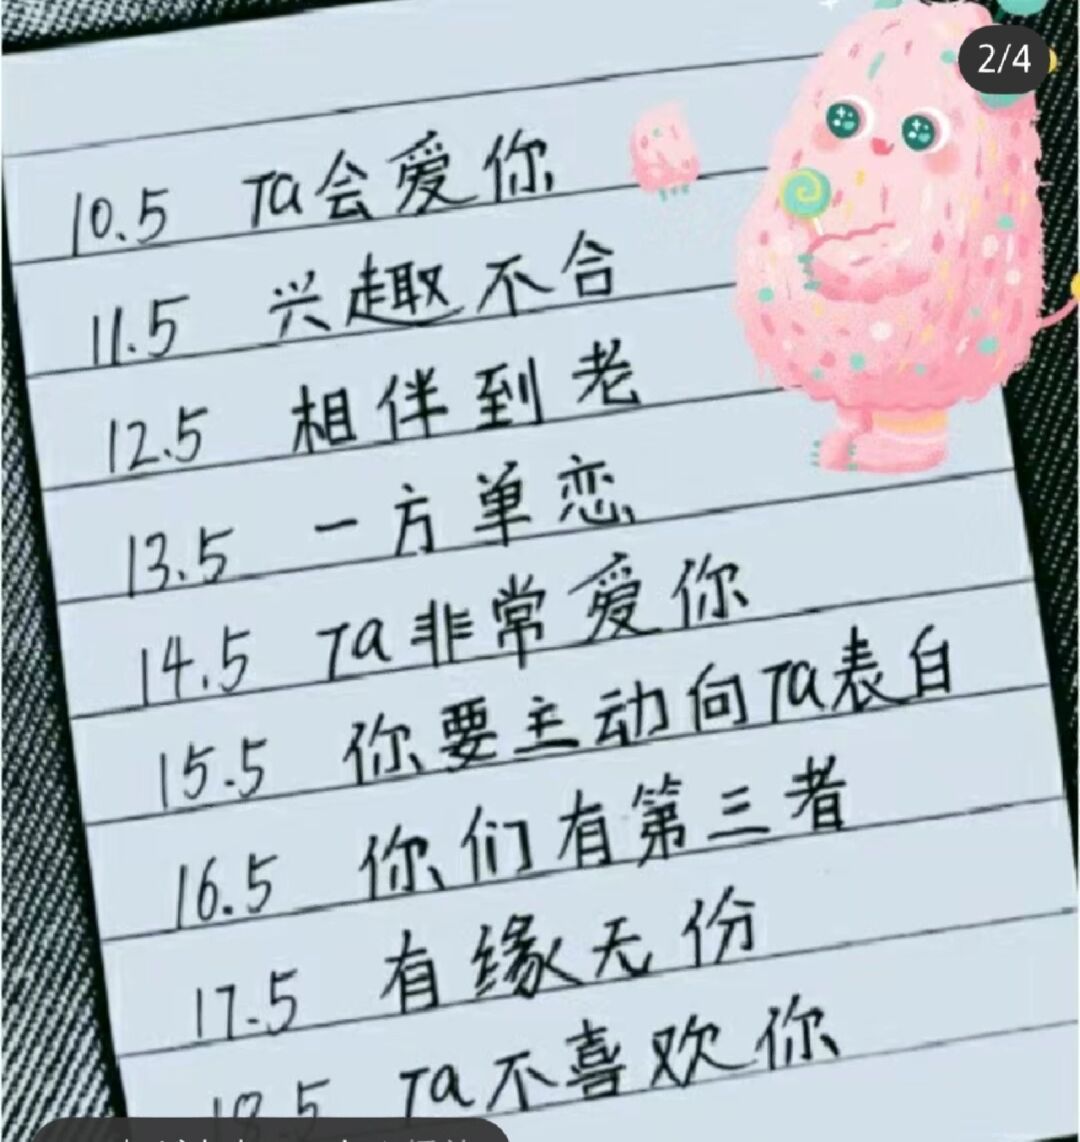 2/4
10.5 Ta会爱你
11.5 兴趣不合
12.5 相伴到老
13.5 一方单恋
14.5 Ta非常爱你
15.5 你要主动向Ta表白
16.5 你们有第三者
17.5 有缘无份
18.5 Ta不喜欢你